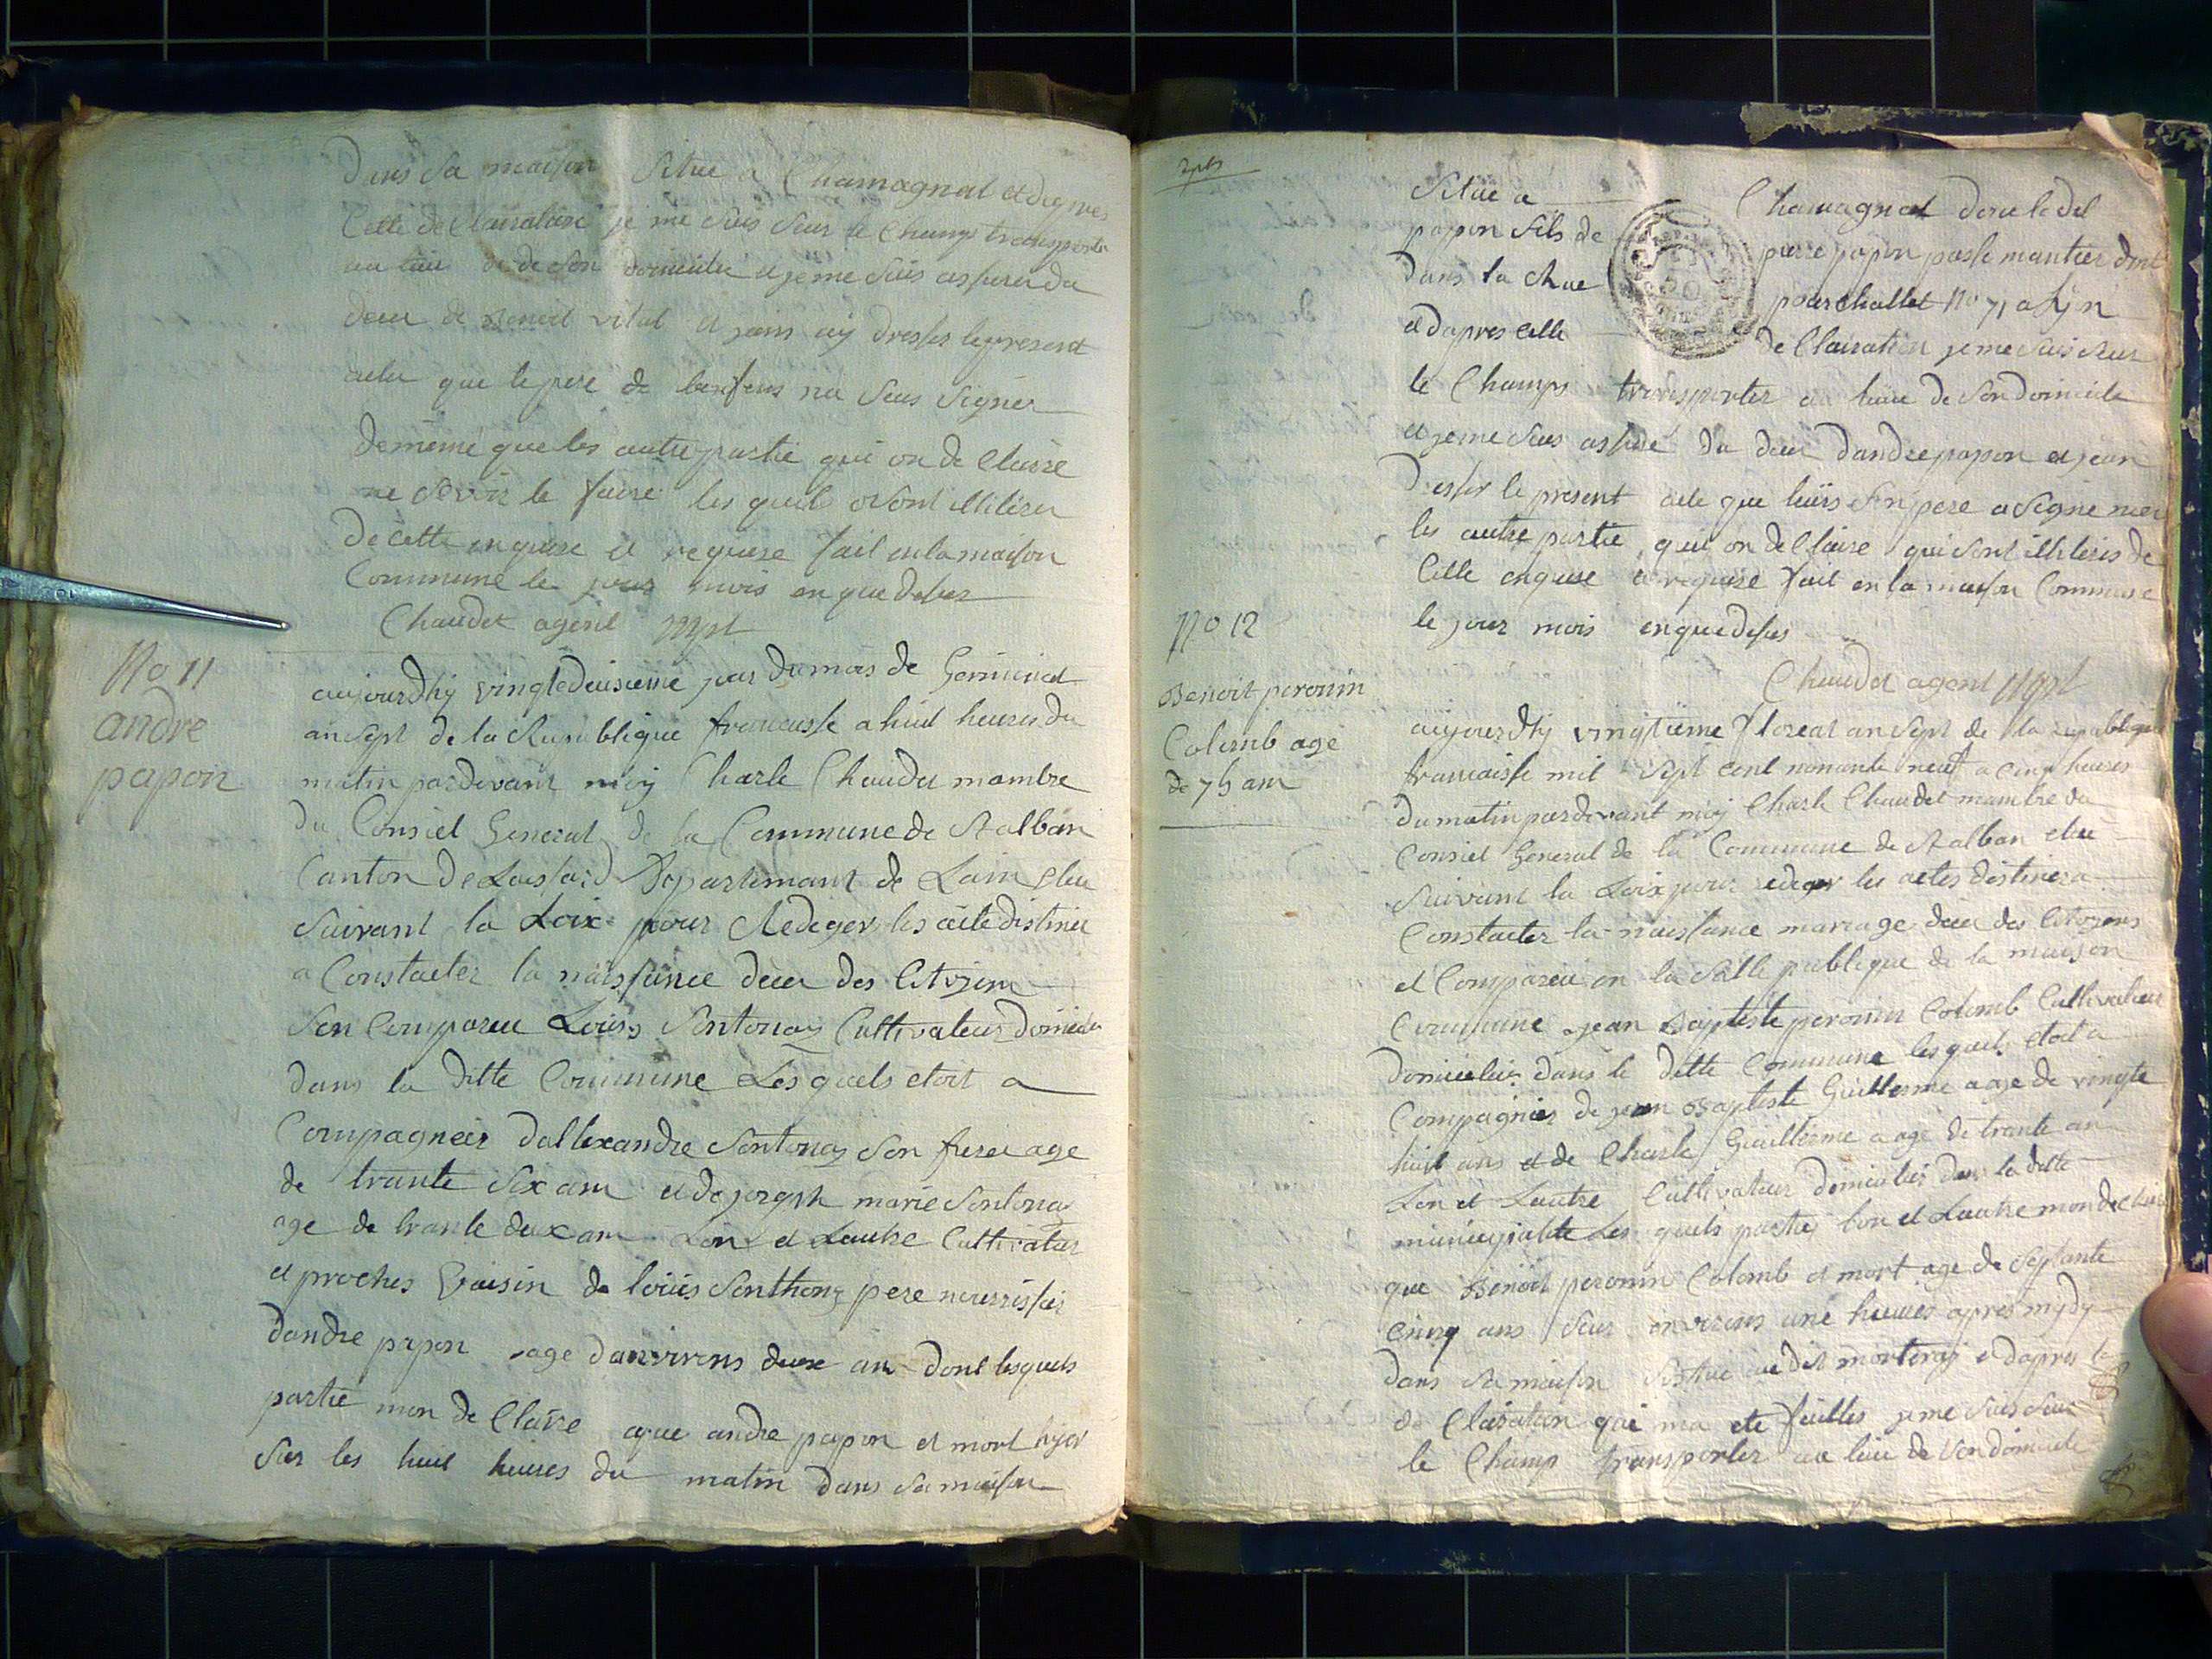 Dans Sa maison Situe a Chamagnat et dapres
Celle de Clairation je me suis Sur le Champ transporte
au lieu de Son domicille et je me Suis assurer du
deces de Benoit vital et jains ay dresses le present
acte que le pere de lenfens na Seus Signer
de meme que les autre partie qui on de Claire
ne Sevoir le faire les quels Sont illiterer
de cette enquise et requise fait en la maison
Commune le jour mois en que desus
Chaudet agent mpl
No 11
andre
papon
aujourdhy vingt deusieme jour du mois de Germinal
an Sept de la Republique francaisse a huit heures du
matin par devant moy Charle Chaudet mambre
du Consiel General de la Commune de St alban
Canton de Departimant de Lain elue
Suivant la Loix pour Rediger les acte distiner
a Constacter la naissance deces des Citoyens
Son Comparu Louis Sontonay Cultivateur domicile
dans la ditte Commune Les quels etoit a
Compagneer dallexandre Sontonay Son frere age
de trante Six ans et de joseph marie Sontonay
age de trante deux ans Lon et Lautre Cultivateur
et proches Voisin de loüis Sonthonay pere nourrissier
dandre papon age danvirons deux ans dont lesquels
partie mon de Claire que andre papon et mort hyer
Sur les huit heures du matin dans Sa maison
Situe a Chamagnat
papon fils de pierre papon
dans la Rue No 71 a Lyon
et dapres celle de Clairation je me Suis Sur
le Champs transporter au lieu de Son domicile
et je me Suis assure du deces dandre papon et jean
dresser le present acte que luirs Son pere a Signe
les autre partie qui on de Claire qui Sont illiteres de
Cette enquise et requise fait en la maison Commune
le jour mois en que desus
Chaudet agent mpl
No 12
Benoit peronin
Colomb age
de 75 ans
aujourdhy vingtieme floreal an Sept de la republique
francaisse mil Sept cent nonante neuf a cinq heures
du matin par devant moy Charle Chaudet mambre du
Consiel General de la Commune de St alban elue
Suivant la Loix pour rediger les actes distiner a
Constacter la naissance mariage deces des Citoyens
et Comparu en la Salle publique de la maison
Commune jean Baptiste peronin Colomb Cultivateur
domicilier dans le ditte Commune les quels etoit a
Compagnier de jean Baptiste Guillerme age de vingte
huit ans et de Charle Guillerme age de trante an
Lon et Lautre Cultivateur domicilier dans la ditte
municipalite Les quels partie lon et Lautre mon de Claire
que Benoit peronin Colomb et mort age de Septante
cinq ans Sur environs une heures apres mydy
dans Sa maison Situe au dit morteray et dapres la
de Clairation qui ma ete faittes je me Suis Sur
le Champ transporter au lieu de Son domicile